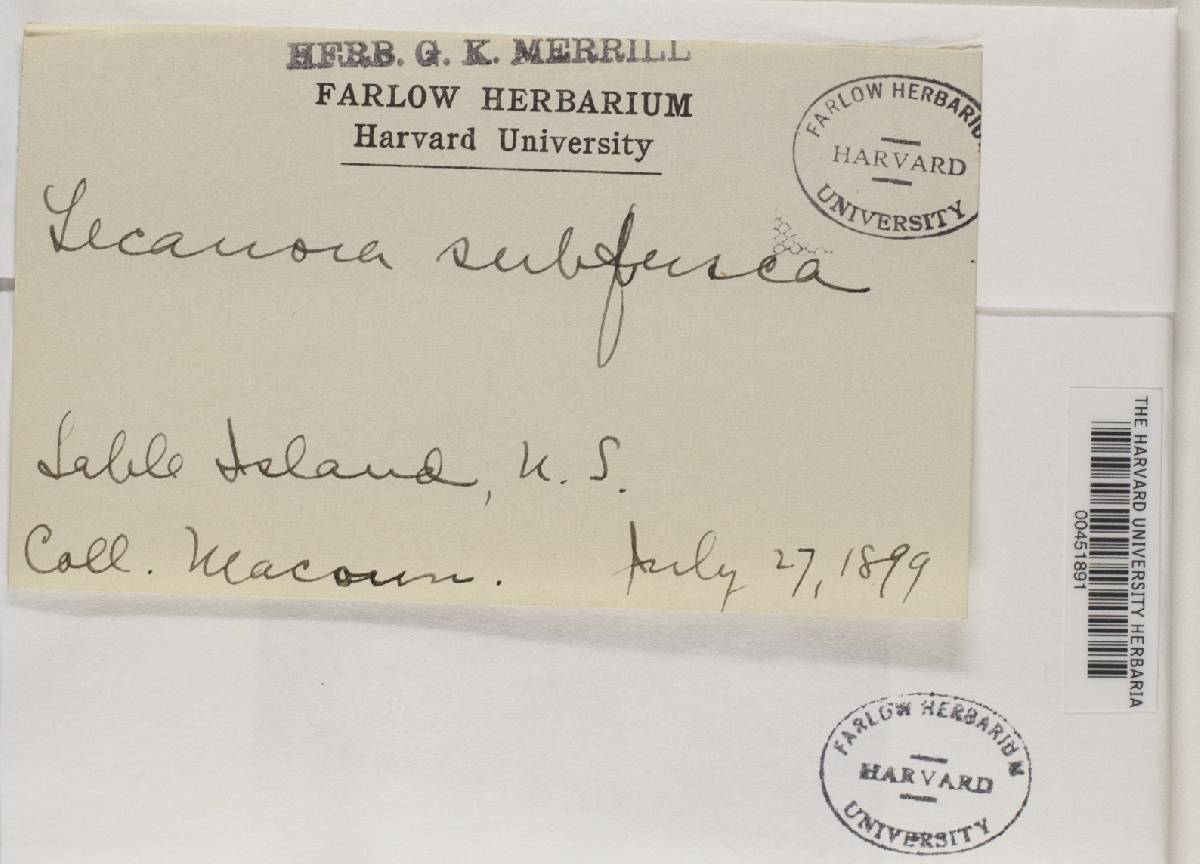 HERB. G. K. MERRILL
FARLOW HERBARIUM
Harvard University
FARLOW HERBARIU
HARVARD
UNIVERSITY
Lecanora subfusca
Sable Island, N. S.
Coll. Macoun. July 27, 1899
THE HARVARD UNIVERSITY HERBARIA
00451891
FARLOW HERBARIUM
HARVARD
UNIVERSITY